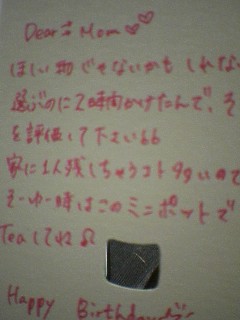 Dear Mom♡♡
ほしい物じゃないかもしれな
選ぶのに2時間かけたんで、そ
を評価して下さい66
家に1人残しちゃうコト多いので
そーゆー時はこのミニポットで
Teaしてね
Happy Birthday